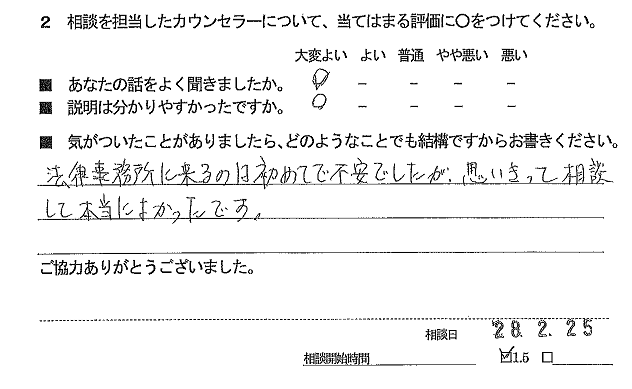 2 相談を担当したカウンセラーについて、当てはまる評価に〇をつけてください。
大変よい よい 普通 やや悪い 悪い
■ あなたの話をよく聞きましたか。 〇 － － － －
■ 説明は分かりやすかったですか。 〇 － － － －
■ 気がついたことがありましたら、どのようなことでも結構ですからお書きください。
法律事務所に来るのは初めてで不安でしたが、思いきって相談
して本当によかったです。
ご協力ありがとうございました。
相談日 '28.2.25
相談開始時間 ☑1.5 □